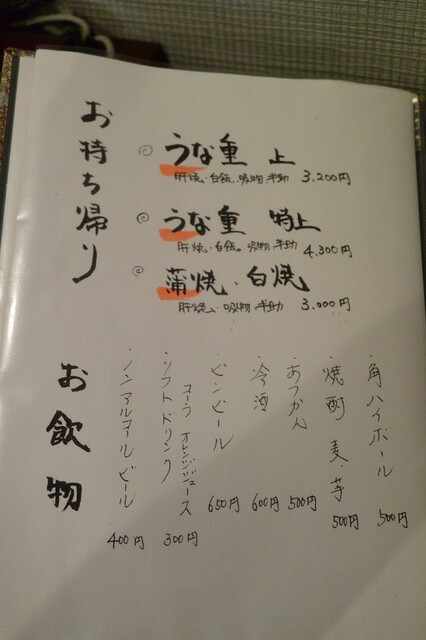 お持ち帰り
うな重 上
肝焼・白飯・吸物・半助 3.200円
うな重 特上
肝焼・白飯・吸物・半助 4.300円
蒲焼・白焼
肝焼・吸物・半助 3.000円
お飲物
・角ハイボール 500円
・焼酎 麦・芋 500円
・あつかん 500円
・冷酒 600円
・ビンビール 650円
・ソフトドリンク 300円
コーラ・オレンジジュース
・ノンアルコールビール 400円